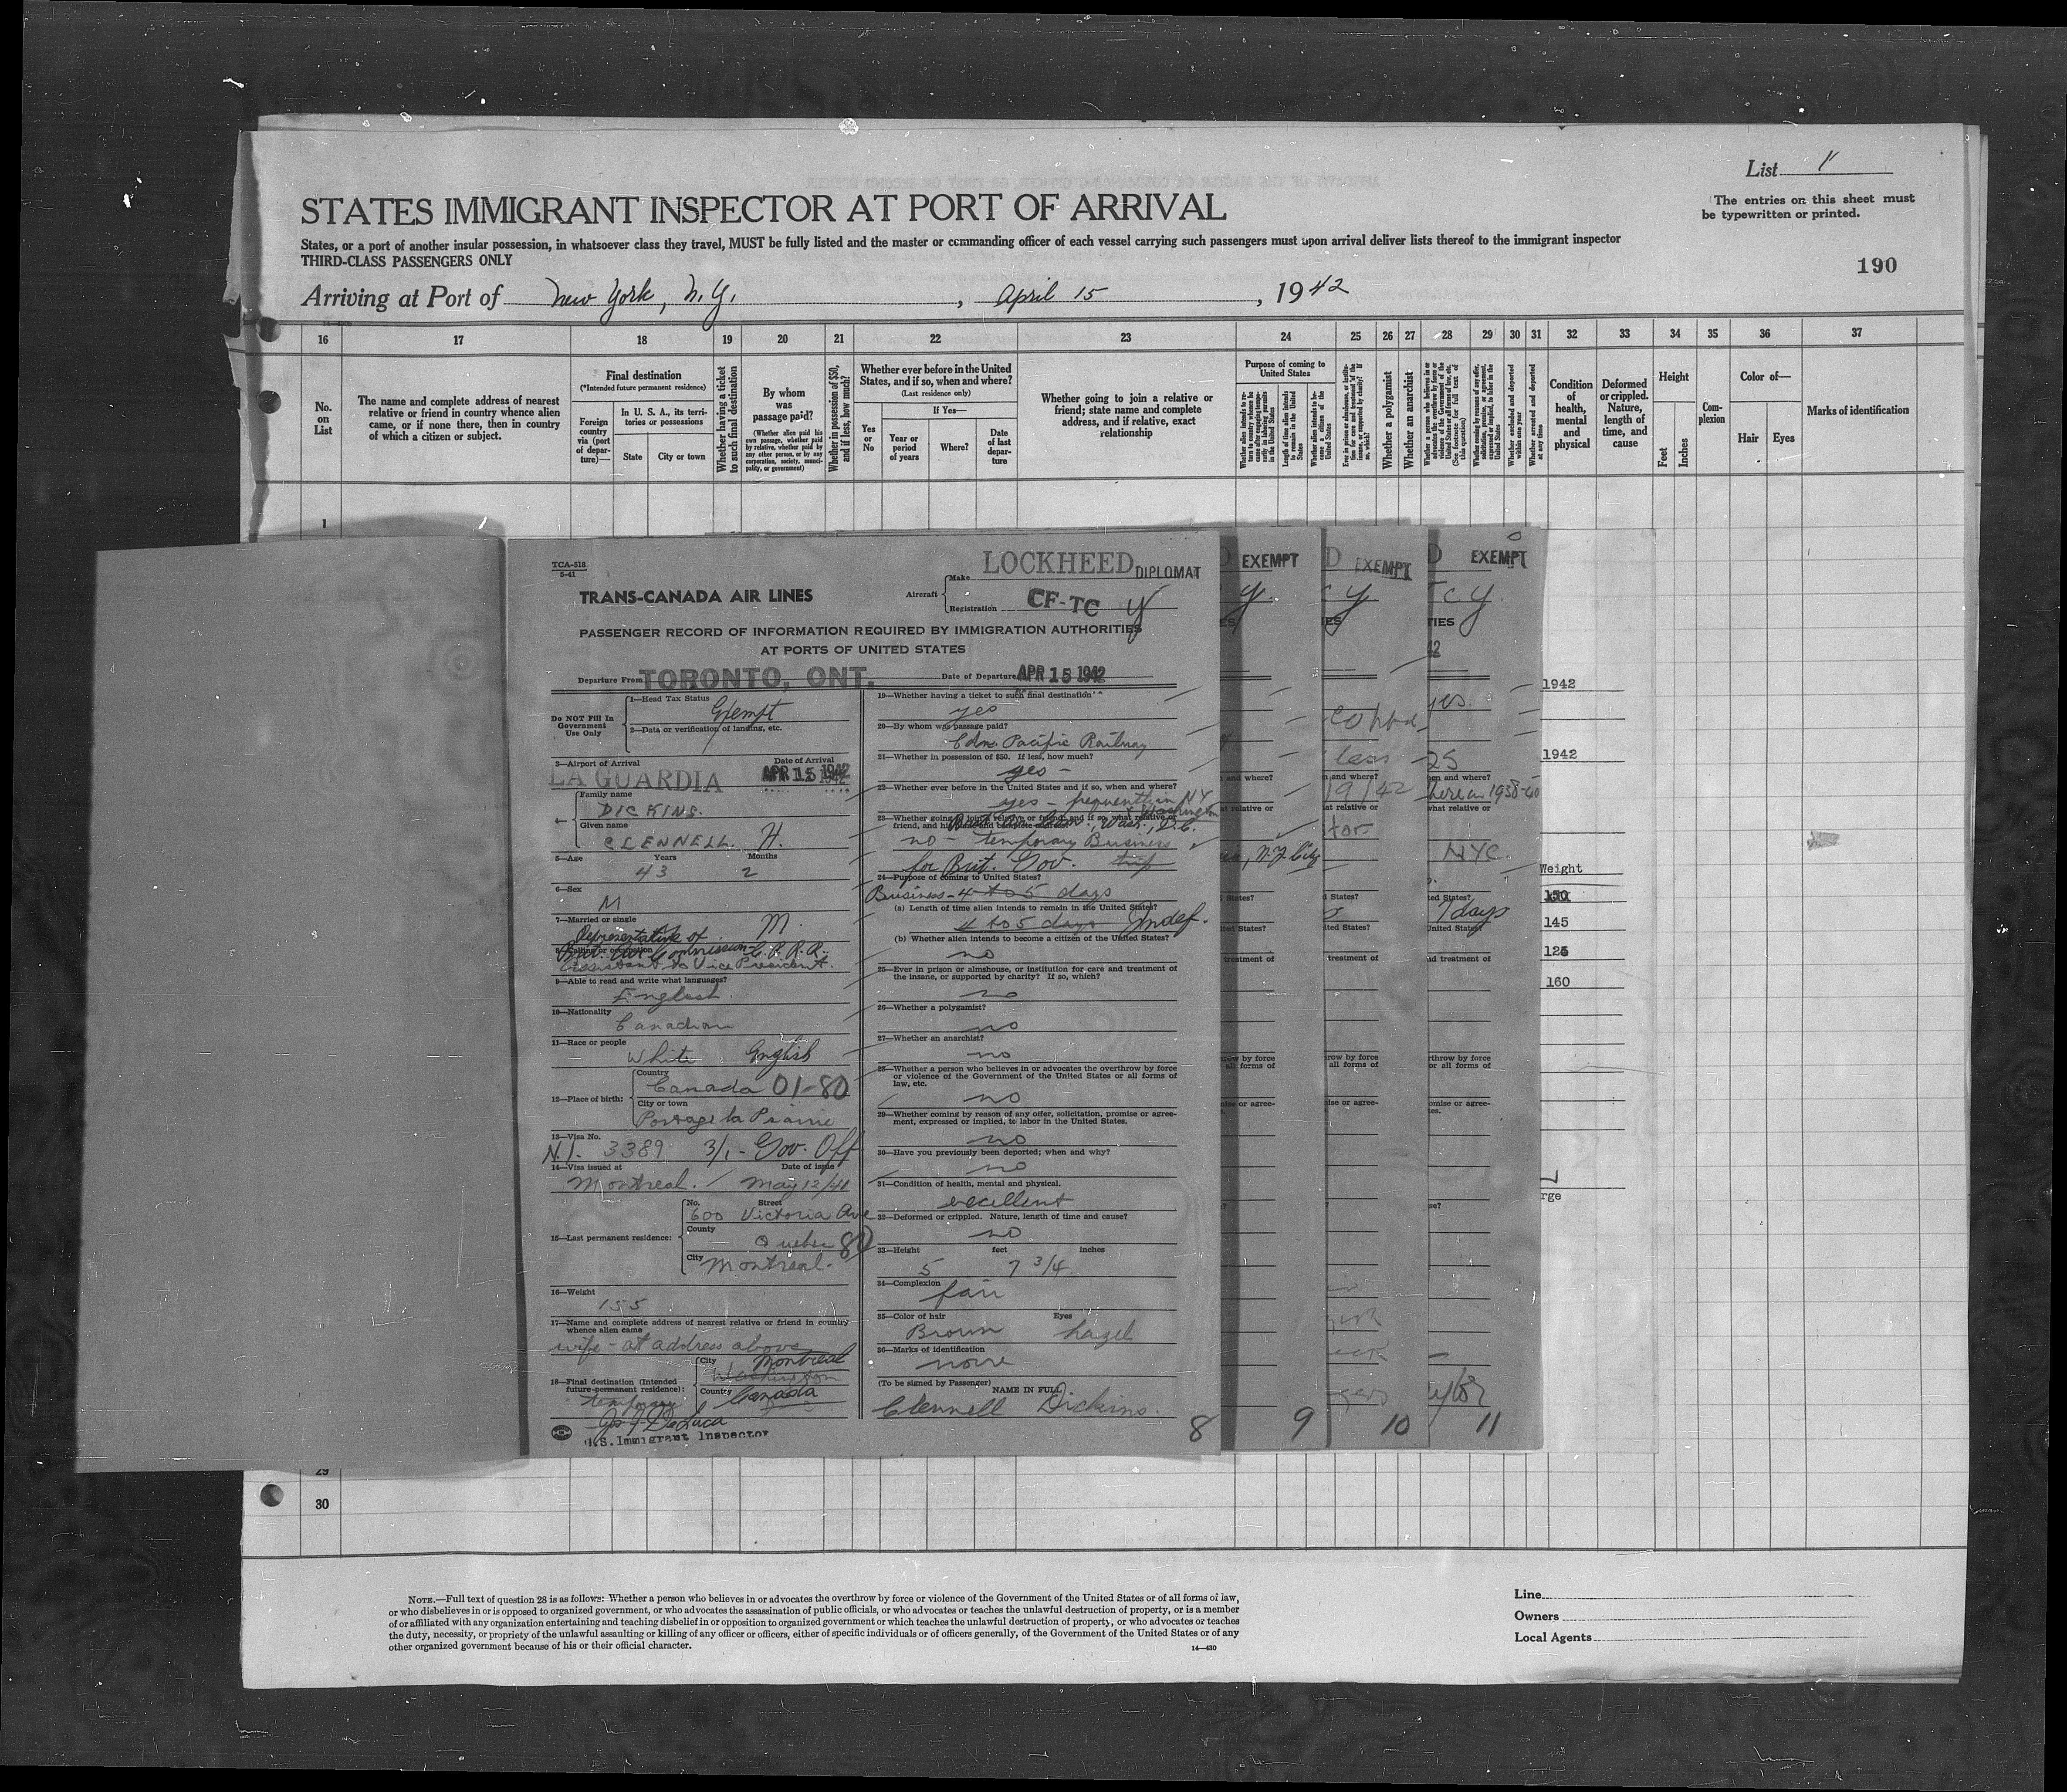 List 1
The entries on this sheet must
be typewritten or printed.
STATES IMMIGRANT INSPECTOR AT PORT OF ARRIVAL
States, or a port of another insular possession, in whatsoever class they travel, MUST be fully listed and the master or commanding officer of each vessel carrying such passengers must upon arrival deliver lists thereof to the immigrant inspector
THIRD-CLASS PASSENGERS ONLY
190
Arriving at Port of New York, N.Y., April 15, 1942
16 17 18 19 20 21 22 23 24 25 26 27 28 29 30 31 32 33 34 35 36 37
No. on List
The name and complete address of nearest
relative or friend in country whence alien
came, or if none there, then in country
of which a citizen or subject.
Final destination
(*Intended future permanent residence)
Foreign country via (port of departure)—
In U. S. A., its territories or possessions
State
City or town
Whether having a ticket to such final destination
By whom was passage paid?
(Whether alien paid his own passage, whether paid by relative, whether paid by any other person, or by any corporation, society, municipality, or government)
Whether in possession of $50, and if less, how much?
Whether ever before in the United
States, and if so, when and where?
(Last residence only)
If Yes—
Yes or No
Year or period of years
Where?
Date of last departure
Whether going to join a relative or
friend; state name and complete
address, and if relative, exact
relationship
Purpose of coming to United States
Whether a polygamist
Whether an anarchist
Condition of health, mental and physical
Deformed or crippled. Nature, length of time, and cause
Height
Feet
Inches
Complexion
Color of—
Hair
Eyes
Marks of identification
1
TCA-518
5-41
TRANS-CANADA AIR LINES
Aircraft
Make LOCKHEED DIPLOMAT
Registration CF-TC Y
PASSENGER RECORD OF INFORMATION REQUIRED BY IMMIGRATION AUTHORITIES
AT PORTS OF UNITED STATES
Departure From TORONTO, ONT. Date of Departure APR 15 1942
Do NOT Fill In
Government
Use Only
1—Head Tax Status
Exempt
2—Data or verification of landing, etc.
3—Airport of Arrival Date of Arrival
LA GUARDIA APR 15 1942
Family name
DICKINS.
Given name
CLENNELL H.
5—Age Years Months
43 2
6—Sex
M
7—Married or single
M.
Representative of
Assistant to Vice President.
9—Able to read and write what languages?
English
10—Nationality
Canadian
11—Race or people
White English
12—Place of birth:
Country
Canada 01-80
City or town
Portage la Prairie
13—Visa No.
N.I. 3389 3/1 - Gov. Off
14—Visa issued at Date of issue
Montreal. May 12/41
15—Last permanent residence:
No. Street
600 Victoria Ave
County
Quebec 80
City
Montreal.
16—Weight
155
17—Name and complete address of nearest relative or friend in country
whence alien came
wife - at address above
18—Final destination (Intended
future permanent residence):
City Montreal
Washington
Country Canada
temporary
U.S. Immigrant Inspector
19—Whether having a ticket to such final destination
yes
20—By whom was passage paid?
Cdn. Pacific Railway
21—Whether in possession of $50. If less, how much?
yes -
22—Whether ever before in the United States and if so, when and where?
yes - frequently in NY
Washington
23—Whether going to join relative or friend, and if so, what relative or
friend, and his name and complete address
Wash., D.C.
no - temporary Business
for Brit. Gov. trip
24—Purpose of coming to United States?
Business - 4 to 5 days
(a) Length of time alien intends to remain in the United States?
4 to 5 days Indef.
(b) Whether alien intends to become a citizen of the United States?
no
25—Ever in prison or almshouse, or institution for care and treatment of
the insane, or supported by charity? If so, which?
no
26—Whether a polygamist?
no
27—Whether an anarchist?
no
28—Whether a person who believes in or advocates the overthrow by force
or violence of the Government of the United States or all forms of
law, etc.
no
29—Whether coming by reason of any offer, solicitation, promise or agree-
ment, expressed or implied, to labor in the United States.
no
30—Have you previously been deported; when and why?
no
31—Condition of health, mental and physical.
excellent
32—Deformed or crippled. Nature, length of time and cause?
no
33—Height feet inches
5 7 3/4
34—Complexion
fair
35—Color of hair Eyes
Brown hazel
36—Marks of identification
none
(To be signed by Passenger) NAME IN FULL
Clennell Dickins.
8
EXEMPT
9
EXEMPT
10
EXEMPT
11
1942
1942
Weight
145
160
29
30
NOTE.—Full text of question 28 is as follows: Whether a person who believes in or advocates the overthrow by force or violence of the Government of the United States or of all forms of law,
or who disbelieves in or is opposed to organized government, or who advocates the assassination of public officials, or who advocates or teaches the unlawful destruction of property, or is a member
of or affiliated with any organization entertaining and teaching disbelief in or opposition to organized government or which teaches the unlawful destruction of property, or who advocates or teaches
the duty, necessity, or propriety of the unlawful assaulting or killing of any officer or officers, either of specific individuals or of officers generally, of the Government of the United States or of any
other organized government because of his or their official character.
14—430
Line
Owners
Local Agents